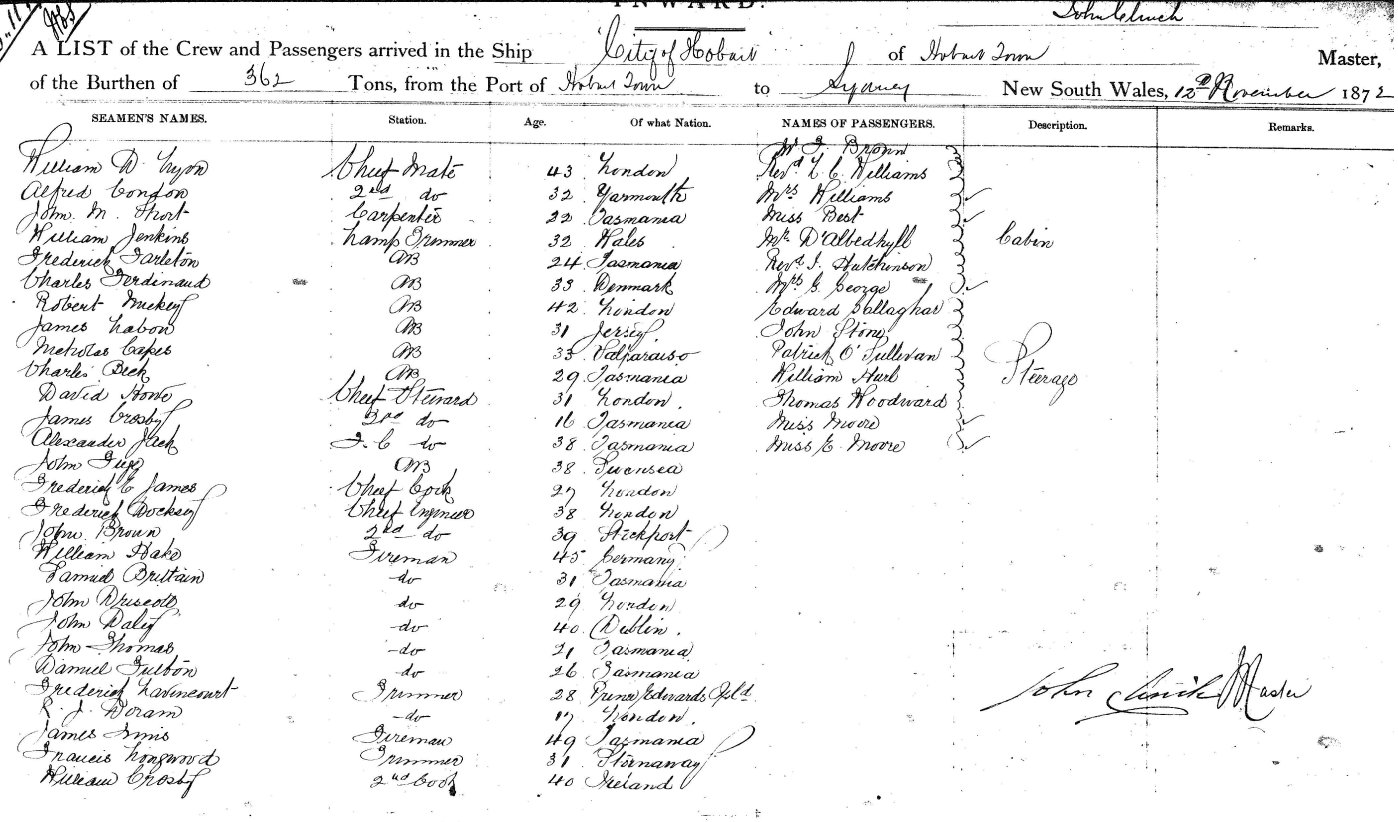 INWARD.
John Clinch
A LIST of the Crew and Passengers arrived in the Ship City of Hobart of Hobart Town Master,
of the Burthen of 362 Tons, from the Port of Hobart Town to Sydney New South Wales, 12th November 1872
SEAMEN'S NAMES. Station. Age. Of what Nation. NAMES OF PASSENGERS. Description. Remarks.
W. J. Brown
William D. Chief Mate 43 London Revd Williams
Alfred Condon 2nd do 32 Yarmouth Mrs Williams
John M. Short Carpenter 22 Tasmania Miss Best
William Jenkins Lamp Trimmer 32 Wales Mr D'Albedhyll Cabin
Frederick Tarleton AB 24 Tasmania Revd J. Hutchinson
Charles Ferdinand AB 33 Denmark Mrs G. George
Robert Mickey AB 42 London Edward Gallaghar
James Labon AB 31 Jersey John Stone
Nicholas Capes AB 33 Valparaiso Patrick O'Sullivan Steerage
Charles Beck AB 29 Tasmania William Hurl
David Howe Chief Steward 31 London. Thomas Woodward
James Crosby 2nd do 16 Tasmania Miss Moore
Alexander Jack F. C do 38 Tasmania Miss E. Moore
John AB 38 Swensea
Frederick E James Chief Cook 27 London
Frederick Docksey Chief Engineer 38 London
John Brown 2nd do 39 Stockport
William Hake Fireman 45 Germany
Samuel Brittain do 31 Tasmania
John Driscoll do 29 London
John Daley do 40 Dublin.
John Thomas do 21 Tasmania
Daniel Fulton do 26 Tasmania
Frederick Lavincourt Trimmer 28 Prince Edwards Isld
R. J. Doram do 17 London.
James Innis Fireman 49 Tasmania
Francis Longwood Trimmer 31 Stornaway
William Crosby 2nd Cook 40 Ireland
John Clinch Master